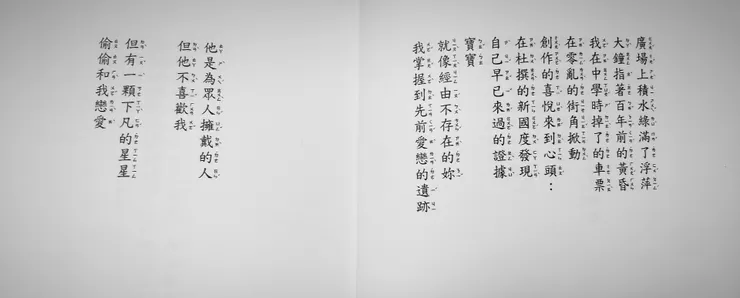 廣場上積水綠滿了浮萍
大鐘指著百年前的黃昏
我在中學時掉了的車票
在零亂的街角掀動
創作的喜悅來到心頭：
在杜撰的新國度發現
自己早已來過的證據
寶寶
就像經由不存在的妳
我掌握到先前愛戀的遺跡
他是為眾人擁戴的人
但他不喜歡我
但有一顆下凡的星星
偷偷和我戀愛